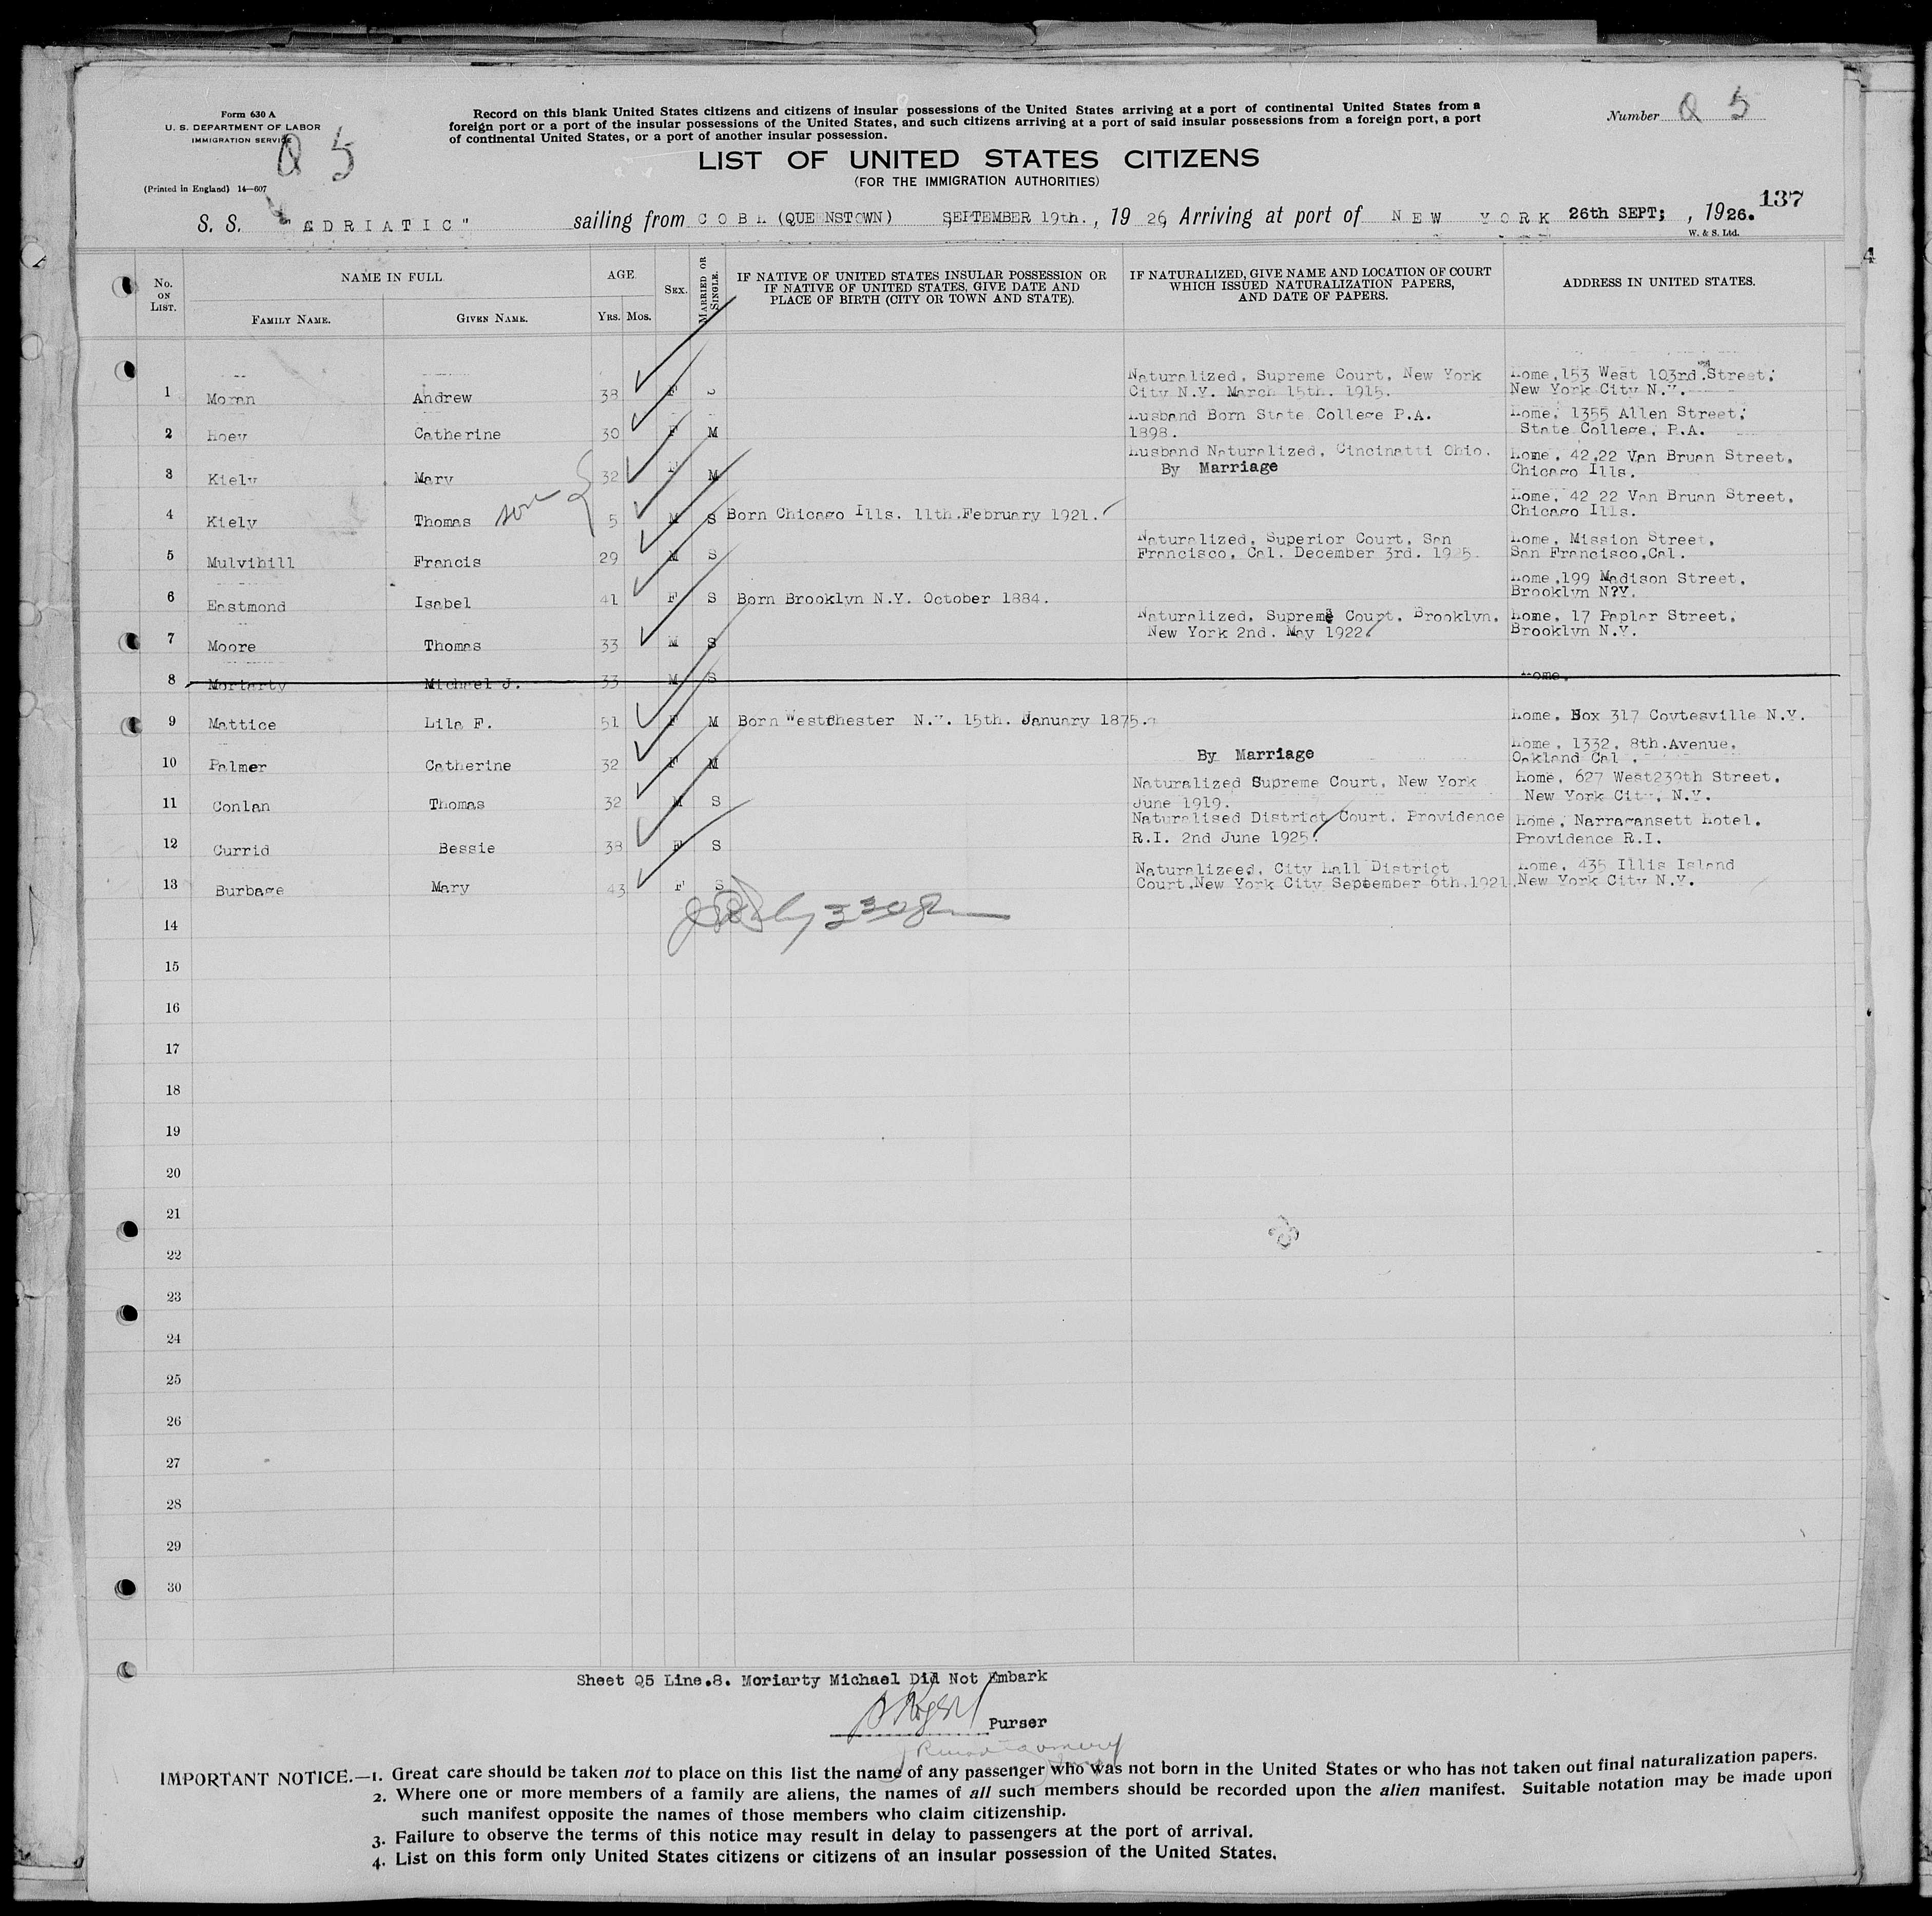 Form 630 A
U. S. DEPARTMENT OF LABOR
IMMIGRATION SERVICE
Q 5
(Printed in England) 14—607
Record on this blank United States citizens and citizens of insular possessions of the United States arriving at a port of continental United States from a
foreign port or a port of the insular possessions of the United States, and such citizens arriving at a port of said insular possessions from a foreign port, a port
of continental United States, or a port of another insular possession.
Number Q 5
LIST OF UNITED STATES CITIZENS
(FOR THE IMMIGRATION AUTHORITIES)
137
S. S. "ADRIATIC" sailing from COBH (QUEENSTOWN) SEPTEMBER 19th., 1926, Arriving at port of NEW YORK 26th SEPT; , 1926.
W. & S. Ltd.
No. ON LIST.
NAME IN FULL
FAMILY NAME. GIVEN NAME.
AGE
YRS. MOS.
SEX.
MARRIED OR SINGLE.
IF NATIVE OF UNITED STATES INSULAR POSSESSION OR
IF NATIVE OF UNITED STATES, GIVE DATE AND
PLACE OF BIRTH (CITY OR TOWN AND STATE).
IF NATURALIZED, GIVE NAME AND LOCATION OF COURT
WHICH ISSUED NATURALIZATION PAPERS,
AND DATE OF PAPERS.
ADDRESS IN UNITED STATES.
Naturalized, Supreme Court, New York Home,153 West 103rd.Street;
1 Moran Andrew 38 F S City N.Y. March 15th. 1915. New York City N.Y.
Husband Born State College P.A. Home, 1355 Allen Street;
2 Hoey Catherine 30 F M 1898. State College, P.A.
Husband Naturalized, Cincinatti Ohio. Home, 42,22 Van Bruen Street,
3 Kiely Mary 32 F M By Marriage Chicago Ills.
Home, 42 22 Van Bruen Street,
4 Kiely Thomas son 5 M S Born Chicago Ills. 11th.February 1921. Chicago Ills.
Naturalized, Superior Court, San Home, Mission Street,
5 Mulvihill Francis 29 M S Francisco, Cal. December 3rd. 1925. San Francisco,Cal.
Home,199 Madison Street,
6 Eastmond Isabel 41 F S Born Brooklyn N.Y. October 1884. Brooklyn N?Y.
Naturalized, Supreme Court, Brooklyn, Home, 17 Paplar Street,
7 Moore Thomas 33 M S New York 2nd. May 1922. Brooklyn N.Y.
8 Moriarty Michael J. 33 M S Home.
9 Mattice Lila F. 51 F M Born Westchester N.Y. 15th. January 1875. Home, Box 317 Coytesville N.Y.
Home, 1332, 8th.Avenue,
10 Palmer Catherine 32 F M By Marriage Oakland Cal.
Naturalized Supreme Court, New York Home, 627 West239th Street,
11 Conlan Thomas 32 M S June 1919. New York City, N.Y.
Naturalised District Court, Providence Home, Narragansett Hotel,
12 Currid Bessie 38 F S R.I. 2nd June 1925. Providence R.I.
Naturalizeed, City Hall District Home, 435 Illis Island
13 Burbage Mary 43 F S Court,New York City September 6th.1921. New York City N.Y.
14
15
16
17
18
19
20
21
22
23
24
25
26
27
28
29
30
Sheet Q5 Line.8. Moriarty Michael Did Not Embark
Purser
IMPORTANT NOTICE.—1. Great care should be taken not to place on this list the name of any passenger who was not born in the United States or who has not taken out final naturalization papers.
2. Where one or more members of a family are aliens, the names of all such members should be recorded upon the alien manifest. Suitable notation may be made upon
such manifest opposite the names of those members who claim citizenship.
3. Failure to observe the terms of this notice may result in delay to passengers at the port of arrival.
4. List on this form only United States citizens or citizens of an insular possession of the United States.